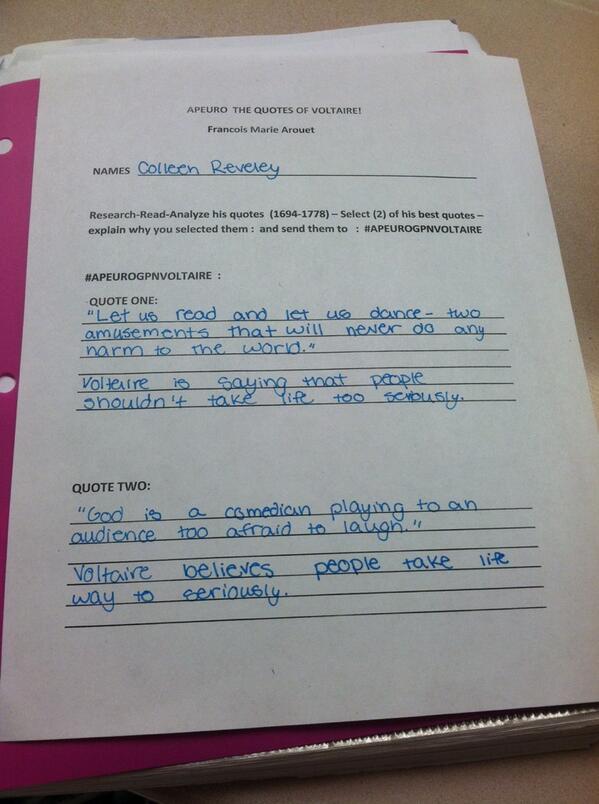 APEURO THE QUOTES OF VOLTAIRE!
Francois Marie Arouet
NAMES Colleen Reveley
Research-Read-Analyze his quotes (1694-1778) – Select (2) of his best quotes –
explain why you selected them : and send them to : #APEUROGPNVOLTAIRE
#APEUROGPNVOLTAIRE :
QUOTE ONE:
"Let us read and let us dance- two
amusements that will never do any
harm to the world."
Voltaire is saying that people
shouldn't take life too seriously.
QUOTE TWO:
"God is a comedian playing to an
audience too afraid to laugh."
Voltaire believes people take life
way to seriously.